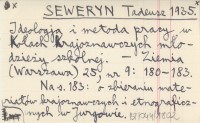 x
SEWERYN Tadeusz 1935.
Ideologja i metoda pracy w
Kołach Krajoznawczych mło-
dzieży szkolnej. — Ziemia
(Warszawa) 25, nr 9: 180-183.
Na s. 183: o zbieraniu mate-
riałów krajoznawczych i etnograficz-
nych w Jurgowie.